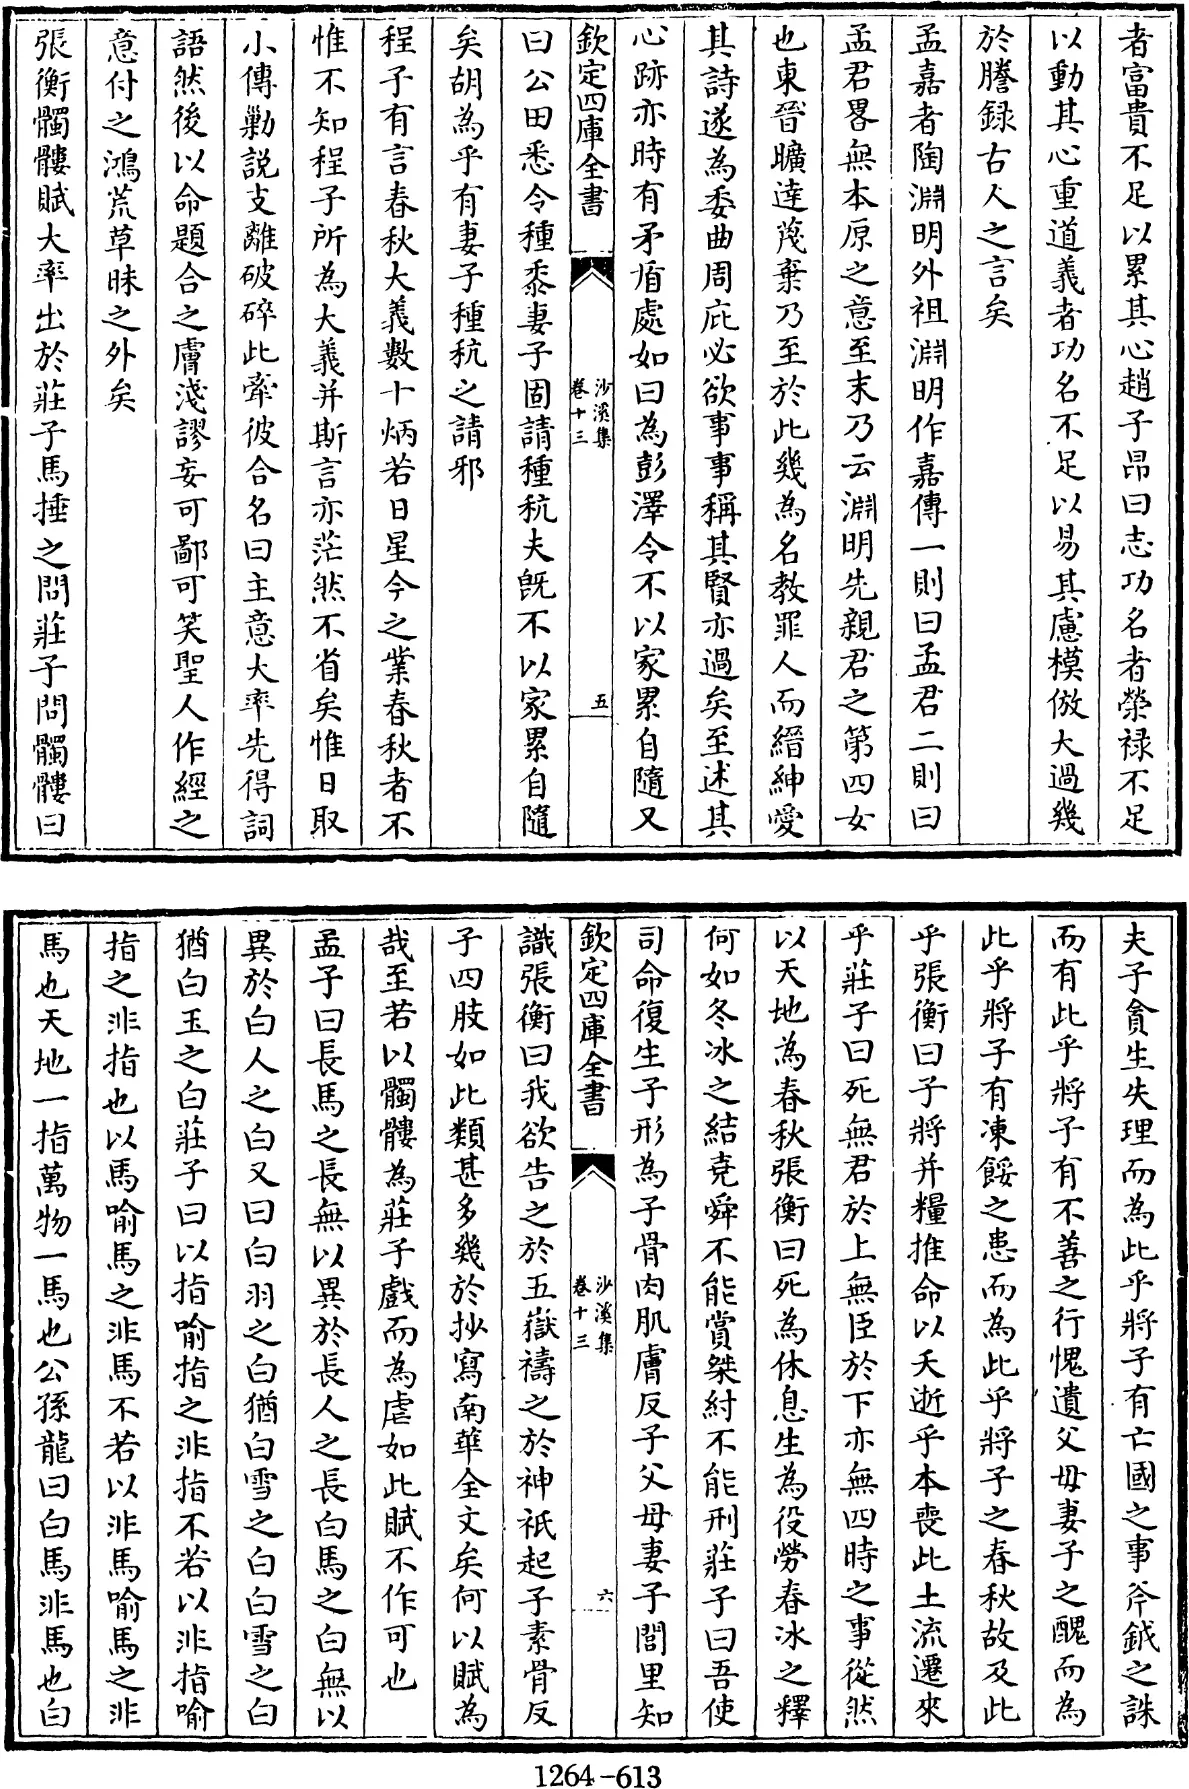 者富貴不足以累其心趙子昂曰志功名者榮祿不足
以動其心重道義者功名不足以易其慮模倣大過幾
於謄録古人之言矣
孟嘉者陶淵明外祖淵明作嘉傳一則曰孟君二則曰
孟君畧無本原之意至末乃云淵明先親君之第四女
也東晉曠達蔑棄乃至於此幾為名教罪人而縉紳愛
其詩遂為委曲周庇必欲事事稱其賢亦過矣至述其
心跡亦時有矛盾處如曰為彭澤令不以家累自隨又
欽定四庫全書
沙溪集
卷十三
五
曰公田悉令種黍妻子固請種秔夫旣不以家累自隨
矣胡為乎有妻子種秔之請邪
程子有言春秋大義數十炳若日星今之業春秋者不
惟不知程子所為大義并斯言亦茫然不省矣惟日取
小傳勦說支離破碎此牽彼合名曰主意大率先得詞
語然後以命題合之膚淺謬妄可鄙可笑聖人作經之
意付之鴻荒草昧之外矣
張衡髑髏賦大率出於莊子馬捶之問莊子問髑髏曰
夫子貪生失理而為此乎將子有亡國之事斧鉞之誅
而有此乎將子有不善之行愧遺父母妻子之醜而為
此乎將子有凍餒之患而為此乎將子之春秋故及此
乎張衡曰子將并糧推命以夭逝乎本喪此土流遷來
乎莊子曰死無君於上無臣於下亦無四時之事從然
以天地為春秋張衡曰死為休息生為役勞春冰之釋
何如冬冰之結堯舜不能賞桀紂不能刑莊子曰吾使
司命復生子形為子骨肉肌膚反子父母妻子閭里知
欽定四庫全書
沙溪集
卷十三
六
識張衡曰我欲告之於五嶽禱之於神祇起子素骨反
子四肢如此類甚多幾於抄寫南華全文矣何以賦為
哉至若以髑髏為莊子戲而為虐如此賦不作可也
孟子曰長馬之長無以異於長人之長白馬之白無以
異於白人之白又曰白羽之白猶白雪之白白雪之白
猶白玉之白莊子曰以指喻指之非指不若以非指喻
指之非指也以馬喻馬之非馬不若以非馬喻馬之非
馬也天地一指萬物一馬也公孫龍曰白馬非馬也白
1264-613